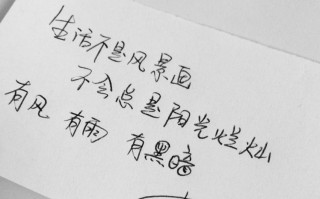 生活不是风景画
不会总是阳光灿烂
有风 有雨 有黑暗